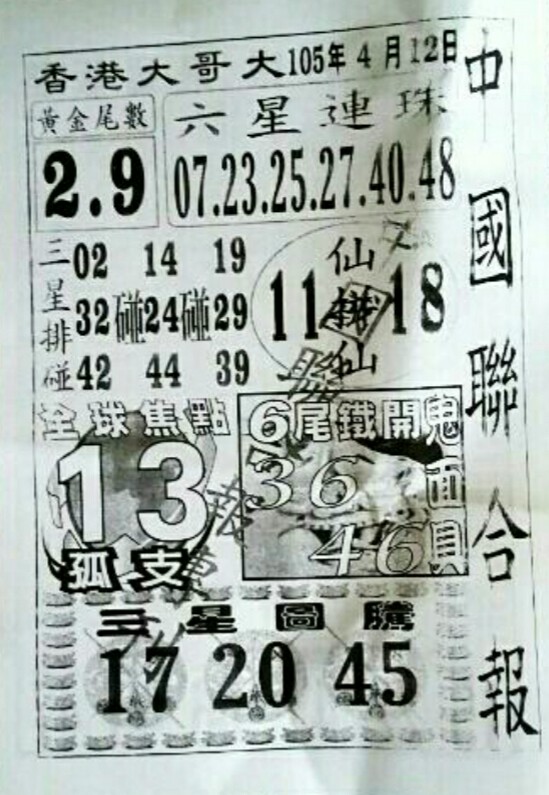 香港大哥大105年4月12日
中國聯合報
黃金尾數
2.9
六星連珠
07.23.25.27.40.48
三星排碰
02 14 19
32碰24碰29
42 44 39
仙拼仙
11 18
全球焦點
13
孤支
6尾鐵開
36
46
鬼面
三星圖騰
17 20 45